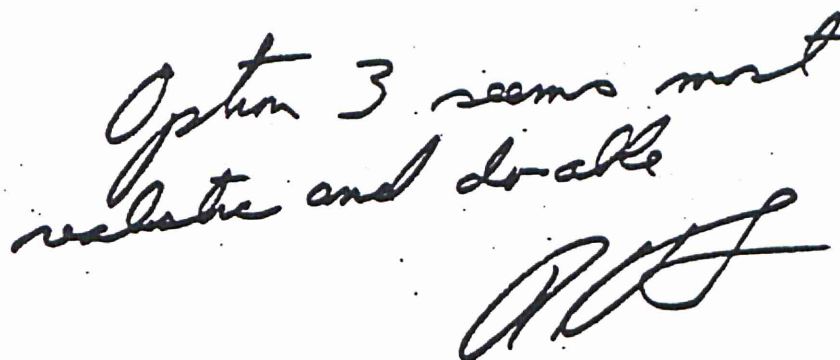 Option 3 seems most
realistic and do-able